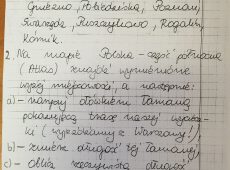 Gniezno, Pobiedziska, Poznań,
Swarzędz, Puszczykowo, Rogalin,
Kórnik.
2. Na mapie Polska - część północna
(Atlas) znajdź wymienione
wyżej miejscowości, a następnie:
a) - narysuj ołówkiem łamaną
pokazującą trasę naszej wyciecz-
ki (wyjeżdżamy z Warszawy),
b) - zmierz długość tej łamanej,
c) - oblicz rzeczywistą długość